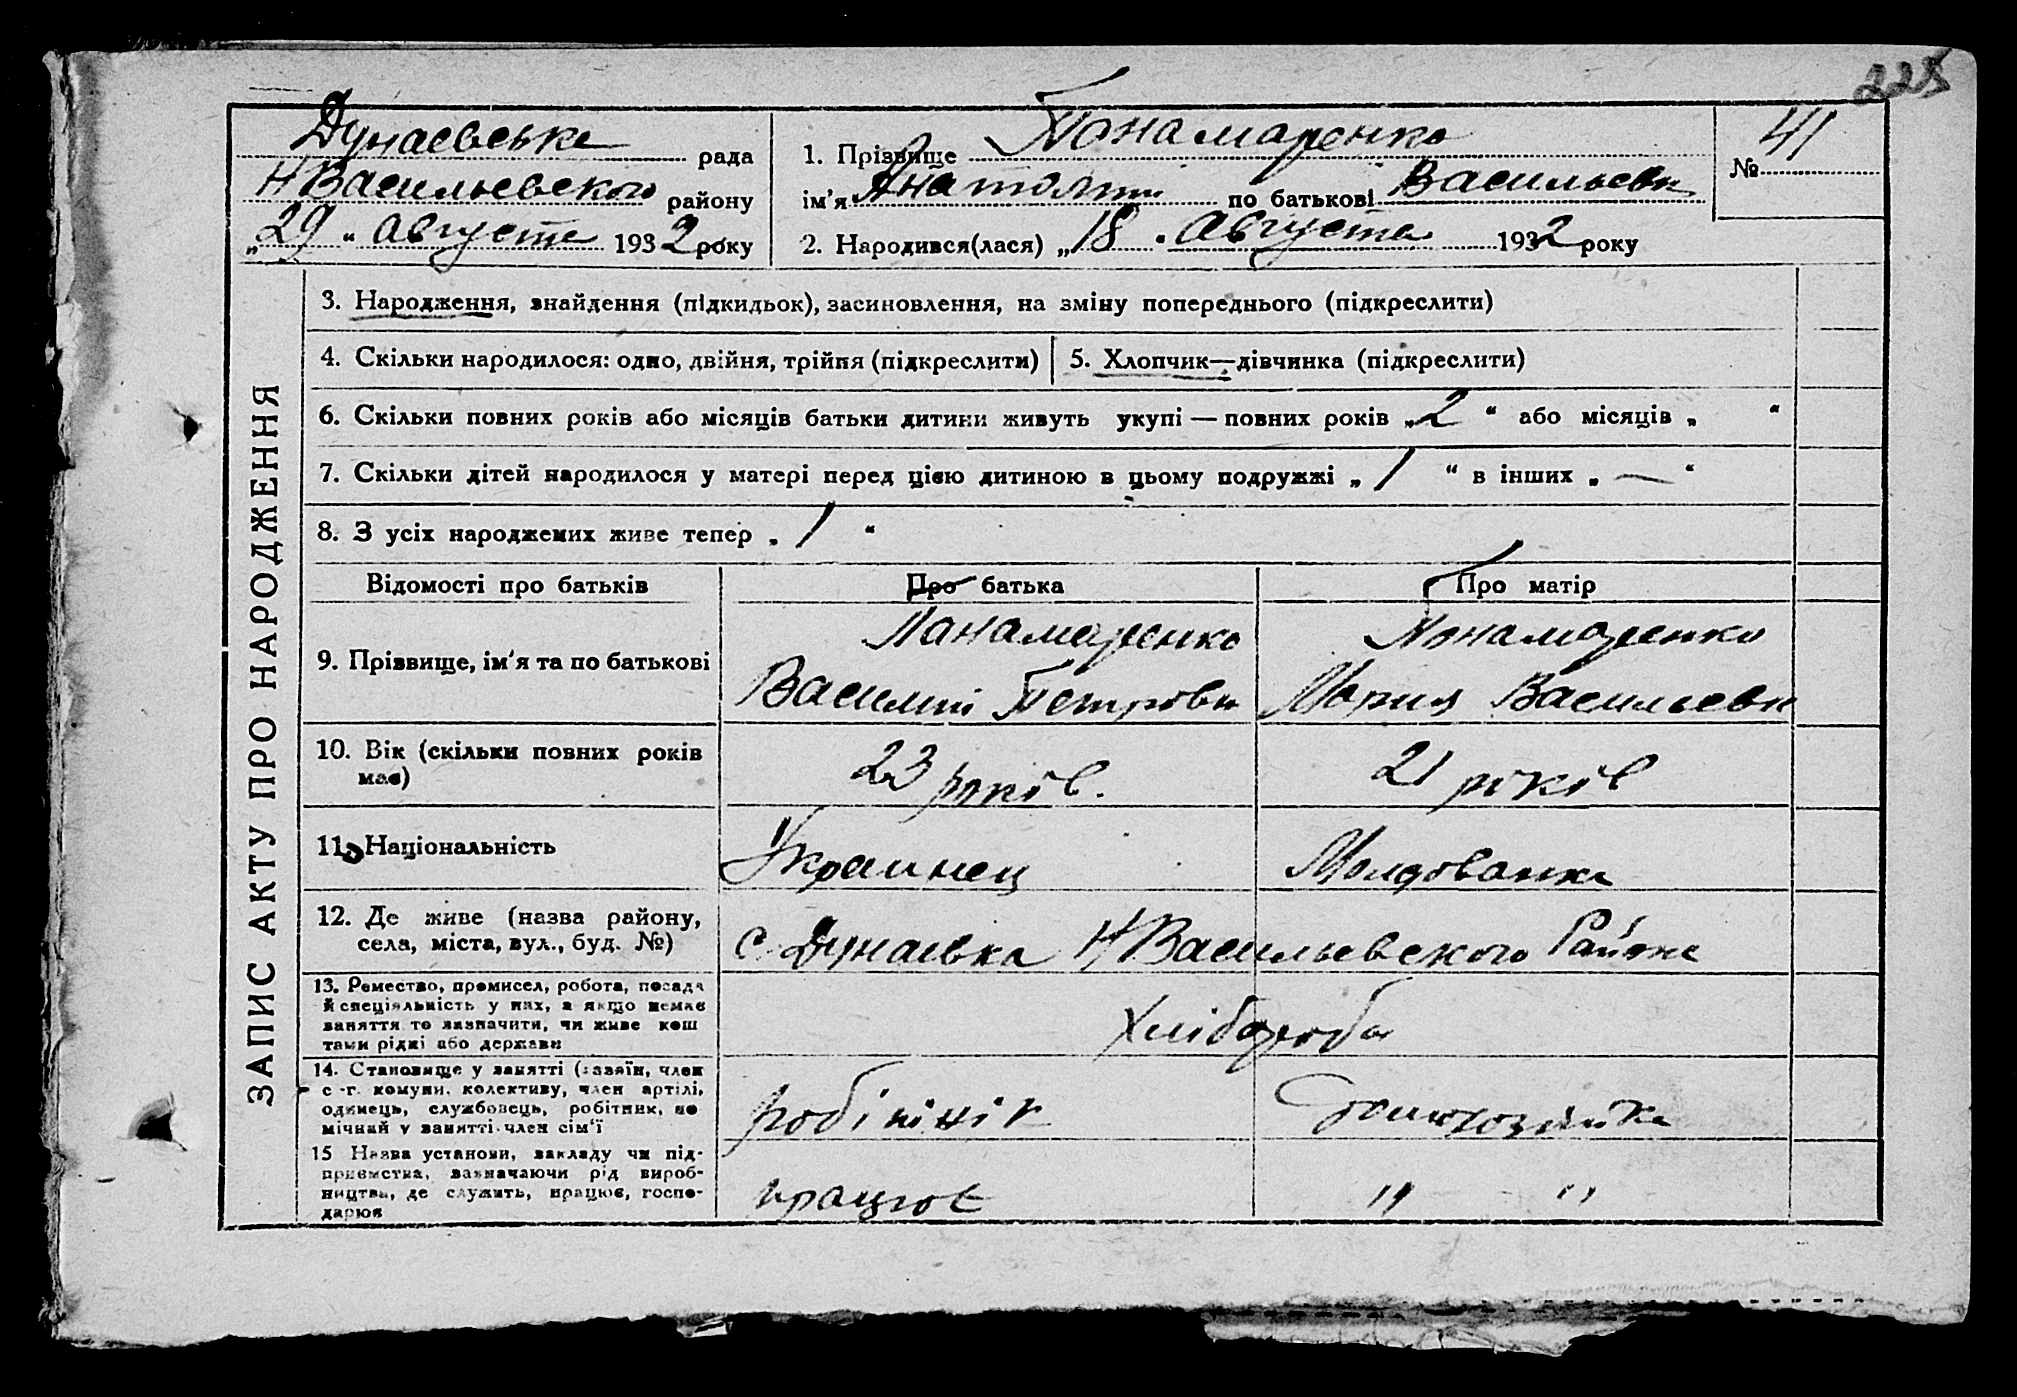 225
Дунаевське рада
Н Васильевского району
„29“ августа 1932 року
1. Прізвище Понамаренко
ім'я Анатолий по батькові Васильевич
2. Народився(лася) „18“ Августа 1932 року
№ 41
ЗАПИС АКТУ ПРО НАРОДЖЕННЯ
3. Народження, знайдення (підкидьок), засиновлення, на зміну попереднього (підкреслити)
4. Скільки народилося: одно, двійня, трійня (підкреслити)
5. Хлопчик—дівчинка (підкреслити)
6. Скільки повних років або місяців батьки дитини живуть укупі — повних років „2“ або місяців „ “
7. Скільки дітей народилося у матері перед цією дитиною в цьому подружжі „1“ в інших „—“
8. З усіх народжених живе тепер „1“
Відомості про батьків
Про батька
Про матір
9. Прізвище, ім'я та по батькові
Панамаренко
Василий Петрович
Понамаренко
Мария Васильевн
10. Вік (скільки повних років
має)
23 років.
21 років
11. Національність
Украинец
Молдованка
12. Де живе (назва району,
села, міста, вул., буд. №)
с. Дунаевка Н/Васильевского Района
13. Ремество, промисел, робота, посада
й спеціяльність у них, а якщо немає
заняття то зазначити, чи живе кош
тами рідні або держави
Хлібороби
14. Становище у занятті (хазяїн, член
с.-г. комуни, колективу, член артілі,
одинець, службовець, робітник, по
мічний у занятті член сім'ї
робітнік
домохозяйка
15 Назва установи, закладу чи під-
приємства, зазначаючи рід вироб-
ництва, де служить, працює, госпо-
дарює
працює
" "